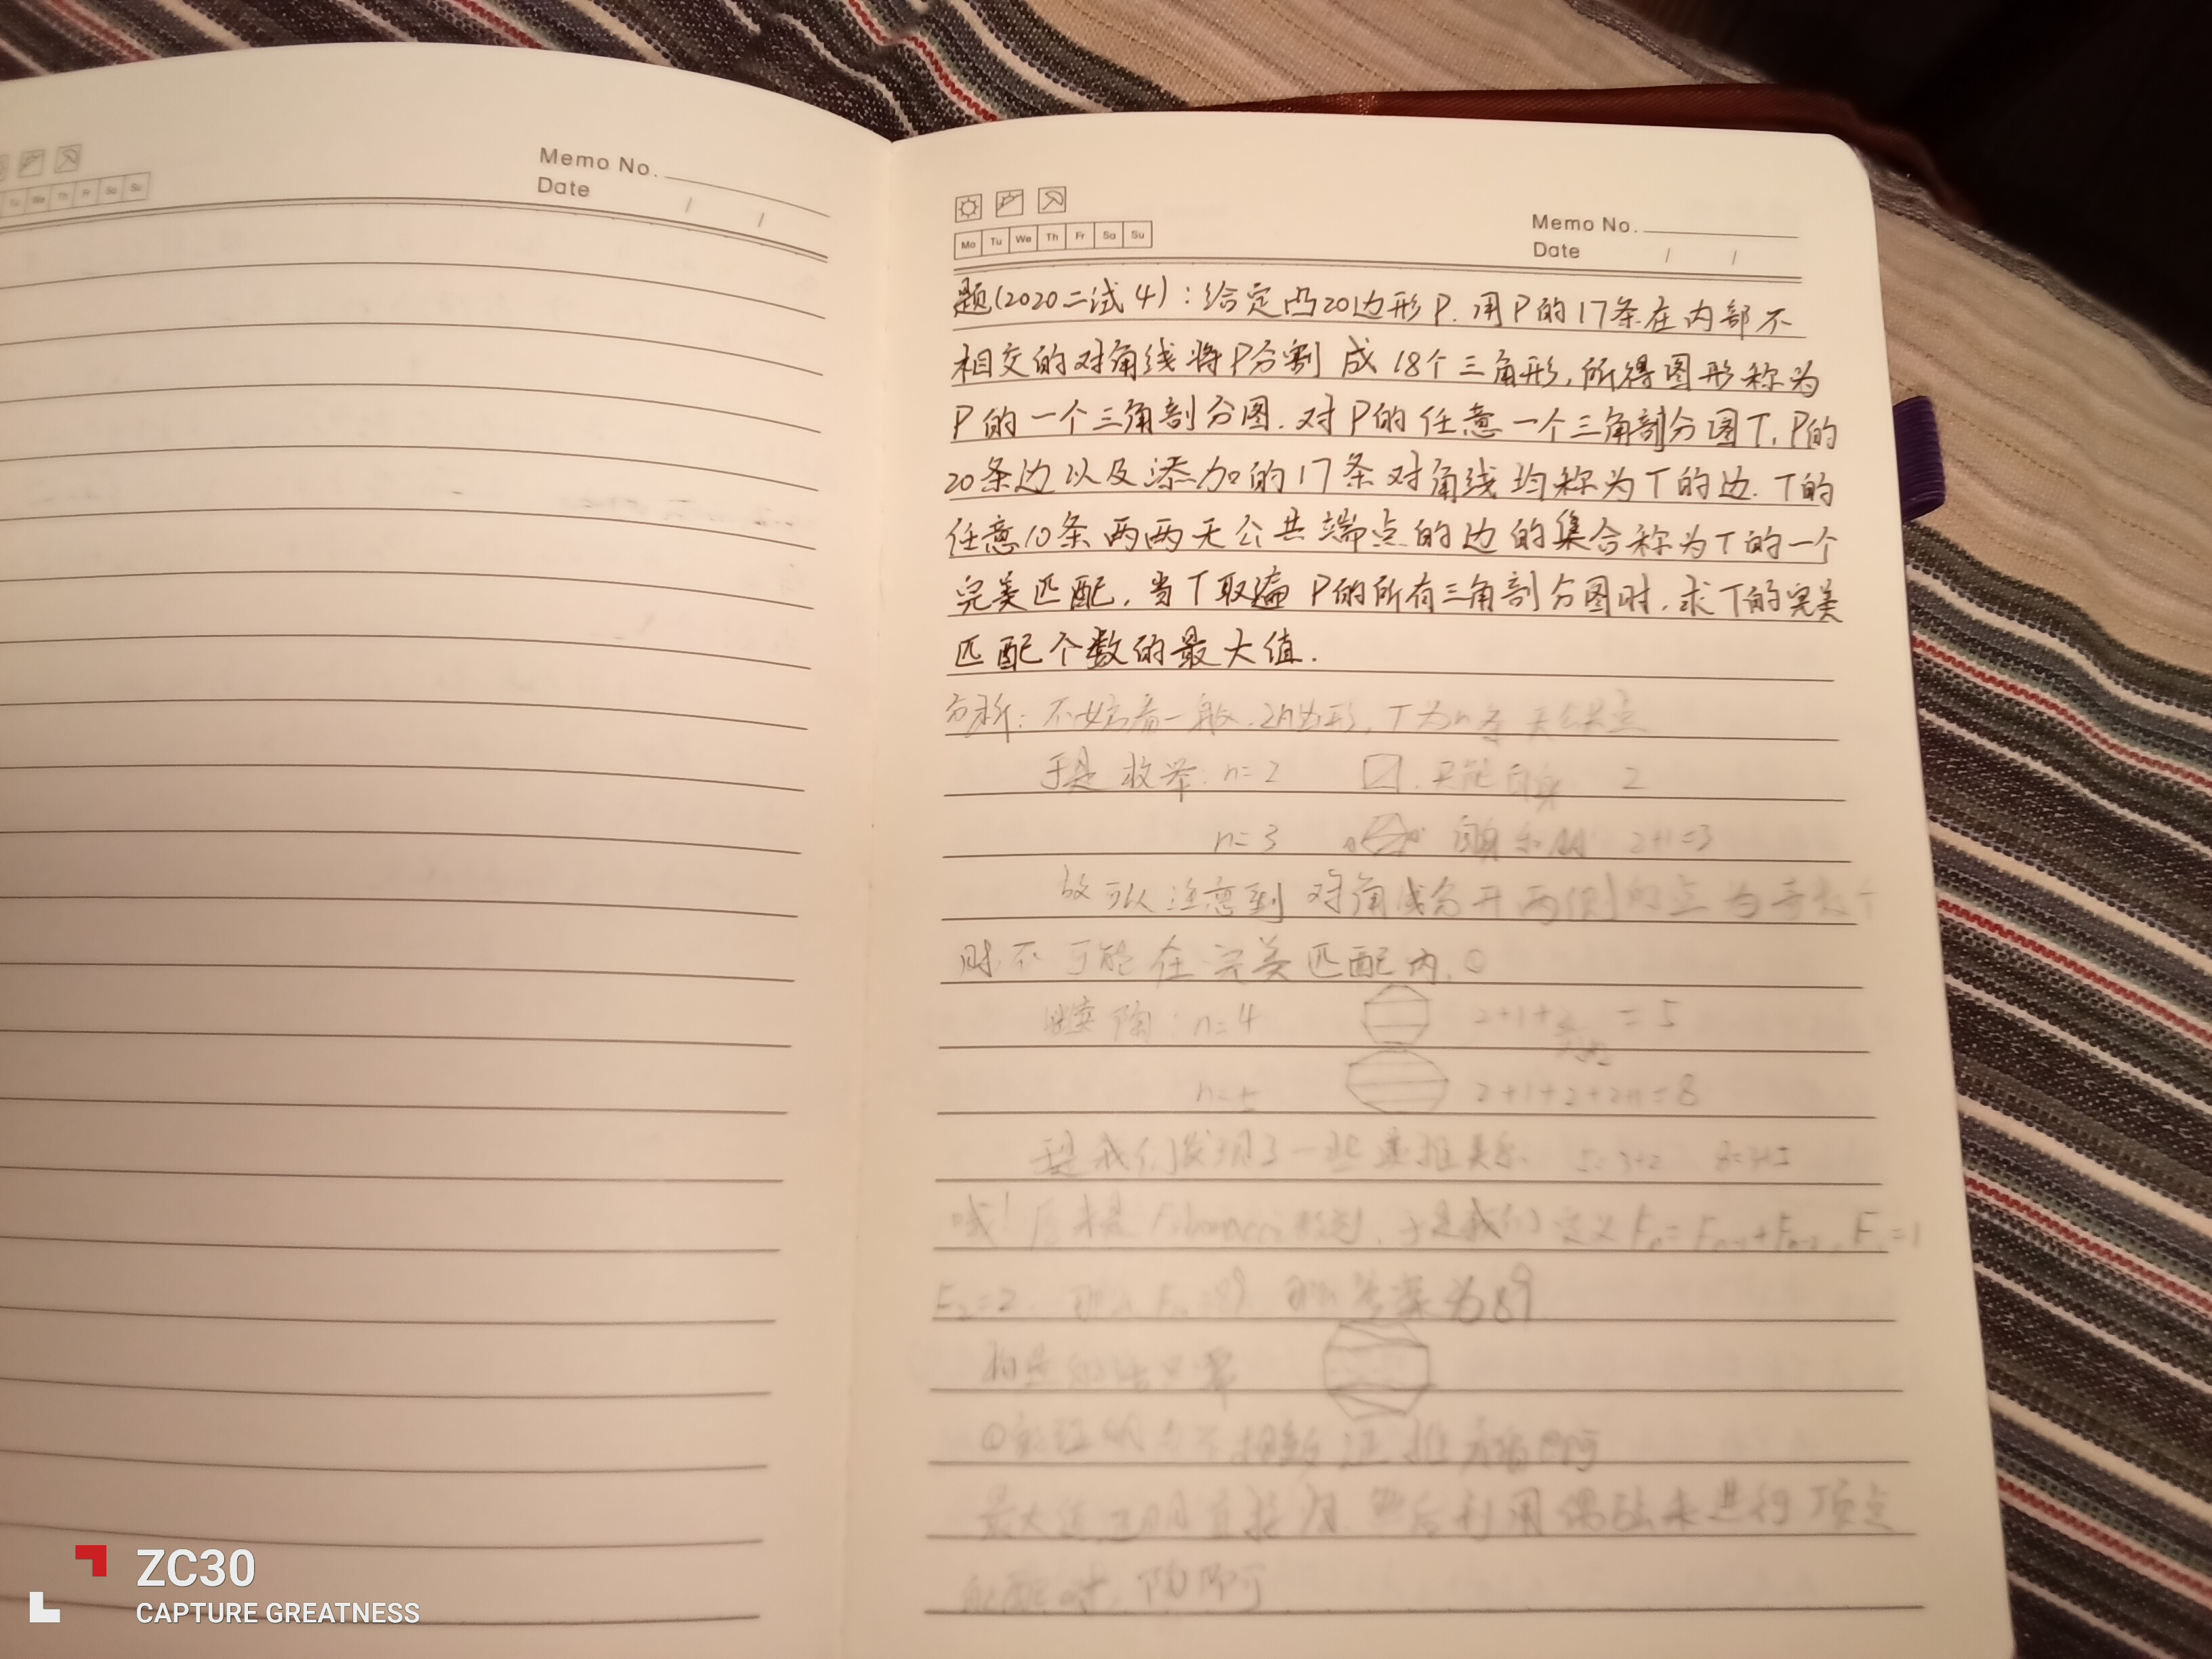 Memo No.
Date / /
Tu We Th Fr Sa Su
Memo No.
Date / /
Mo Tu We Th Fr Sa Su
题(2020二试4):给定凸20边形P.用P的17条在内部不
相交的对角线将P分割成18个三角形,所得图形称为
P的一个三角剖分图.对P的任意一个三角剖分图T,P的
20条边以及添加的17条对角线均称为T的边.T的
任意10条两两无公共端点的边的集合称为T的一个
完美匹配,当T取遍P的所有三角剖分图时,求T的完美
匹配个数的最大值.
分析:不妨看一般.2n边形,T为n条无公共点
于是枚举:n=2 只能自身 2
n=3 2+1=3
故可以注意到对角线分开两侧的点为奇数个
时不可能在完美匹配内.①
n=4 2+1+2=5
2+1+2+2+1=8
于是我们发现了一些递推关系 5=3+2 8=3+5
哦!原来是Fibonacci数列,于是我们定义Fn=Fn-1+Fn-2,F1=1
F2=2. 答案为89
最大值证明 利用 来进行顶点
即可
ZC30
CAPTURE GREATNESS